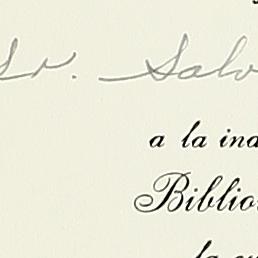 Sr. Salv
a la ina
Biblio
la